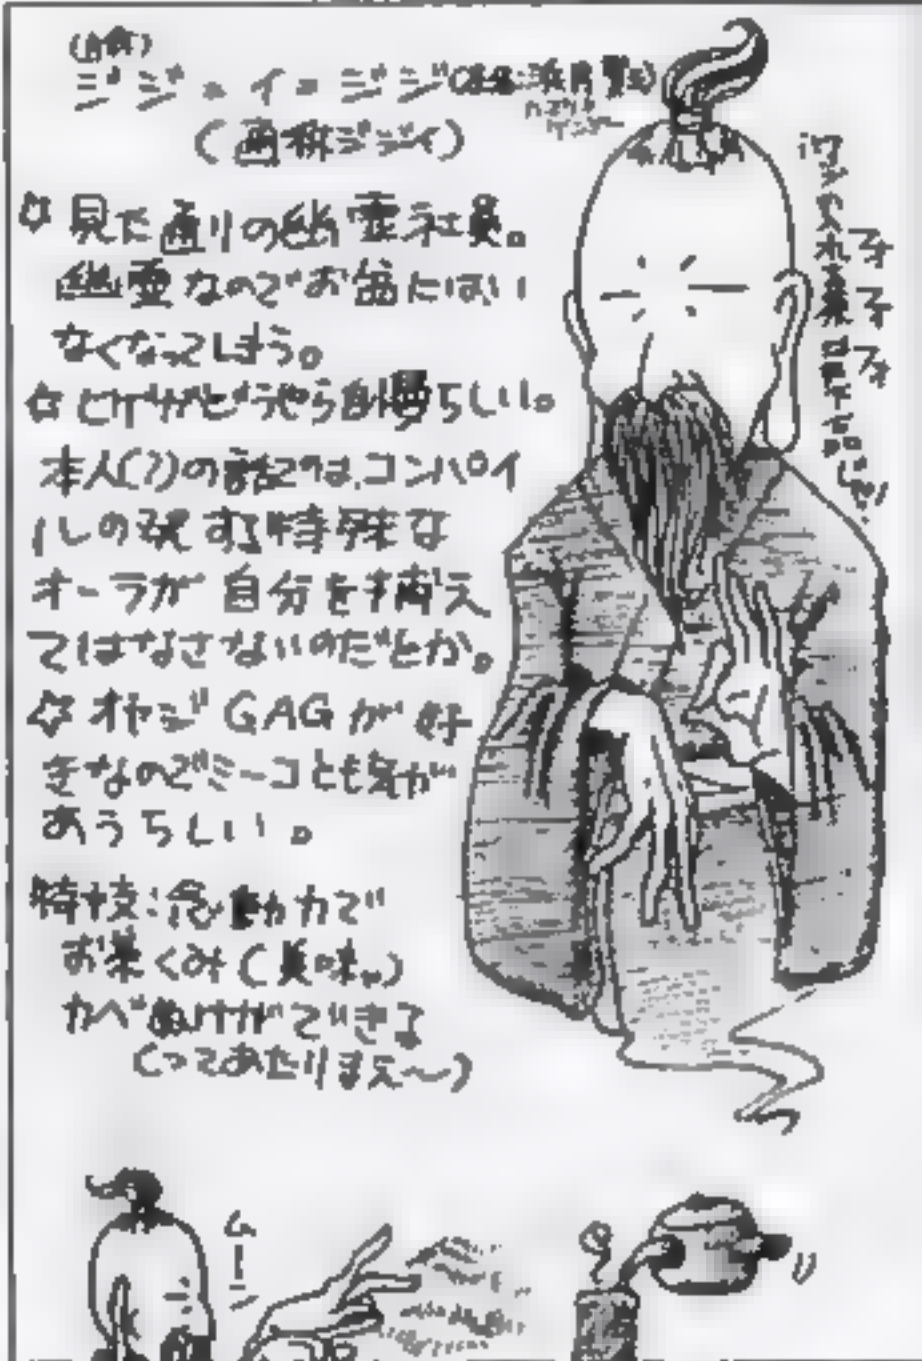 (自称)
ジジ=イ=ジジ(本名:浜月賢三)
ハマツキ
ケンゾー
(通称ジジイ)
☆見た通りの幽霊社員。
幽霊なのでお盆にはい
なくなってしまう。
☆とけがどうやら自慢らしい。
本人(?)の話では、コンパイ
ルの発する特殊な
オーラが自分を捕え
てはなさないのだとか。
☆オヤジGAGが好
きなのでミーコとも気が
あうらしい。
特技:念動力で
お茶くみ(美味。)
カベぬけができる
(ってあたりまえ〜)
フォ
フォ
フォ